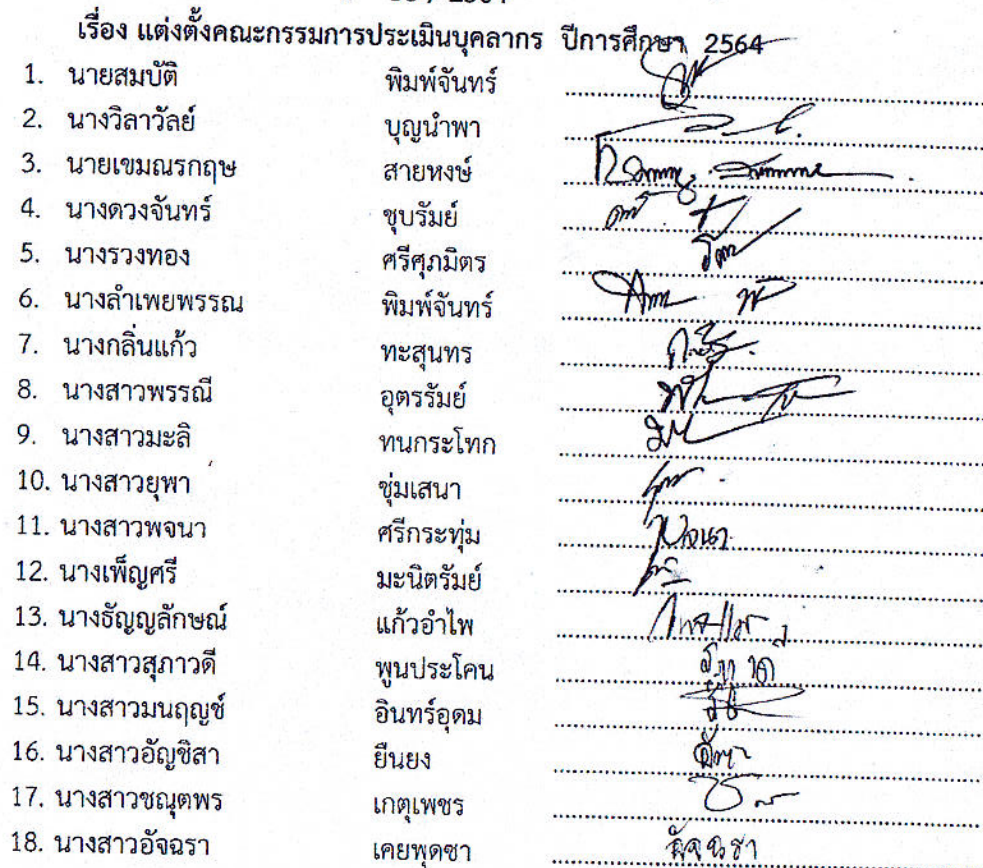 เรื่อง แต่งตั้งคณะกรรมการประเมินบุคลากร ปีการศึกษา 2564
1. นายสมบัติ พิมพ์จันทร์
2. นางวิลาวัลย์ บุญนำพา
3. นายเขมณรกฤษ สายหงษ์
4. นางดวงจันทร์ ชุบรัมย์
5. นางรวงทอง ศรีศุภมิตร
6. นางลำเพยพรรณ พิมพ์จันทร์
7. นางกลิ่นแก้ว ทะสุนทร
8. นางสาวพรรณี อุตรรัมย์
9. นางสาวมะลิ ทนกระโทก
10. นางสาวยุพา ชุ่มเสนา
11. นางสาวพจนา ศรีกระทุ่ม พจนา
12. นางเพ็ญศรี มะนิตรัมย์
13. นางธัญญลักษณ์ แก้วอำไพ
14. นางสาวสุภาวดี พูนประโคน
15. นางสาวมนฤญช์ อินทร์อุดม
16. นางสาวอัญชิสา ยืนยง
17. นางสาวชณุตพร เกตุเพชร
18. นางสาวอัจฉรา เคยพุดซา อัจฉรา